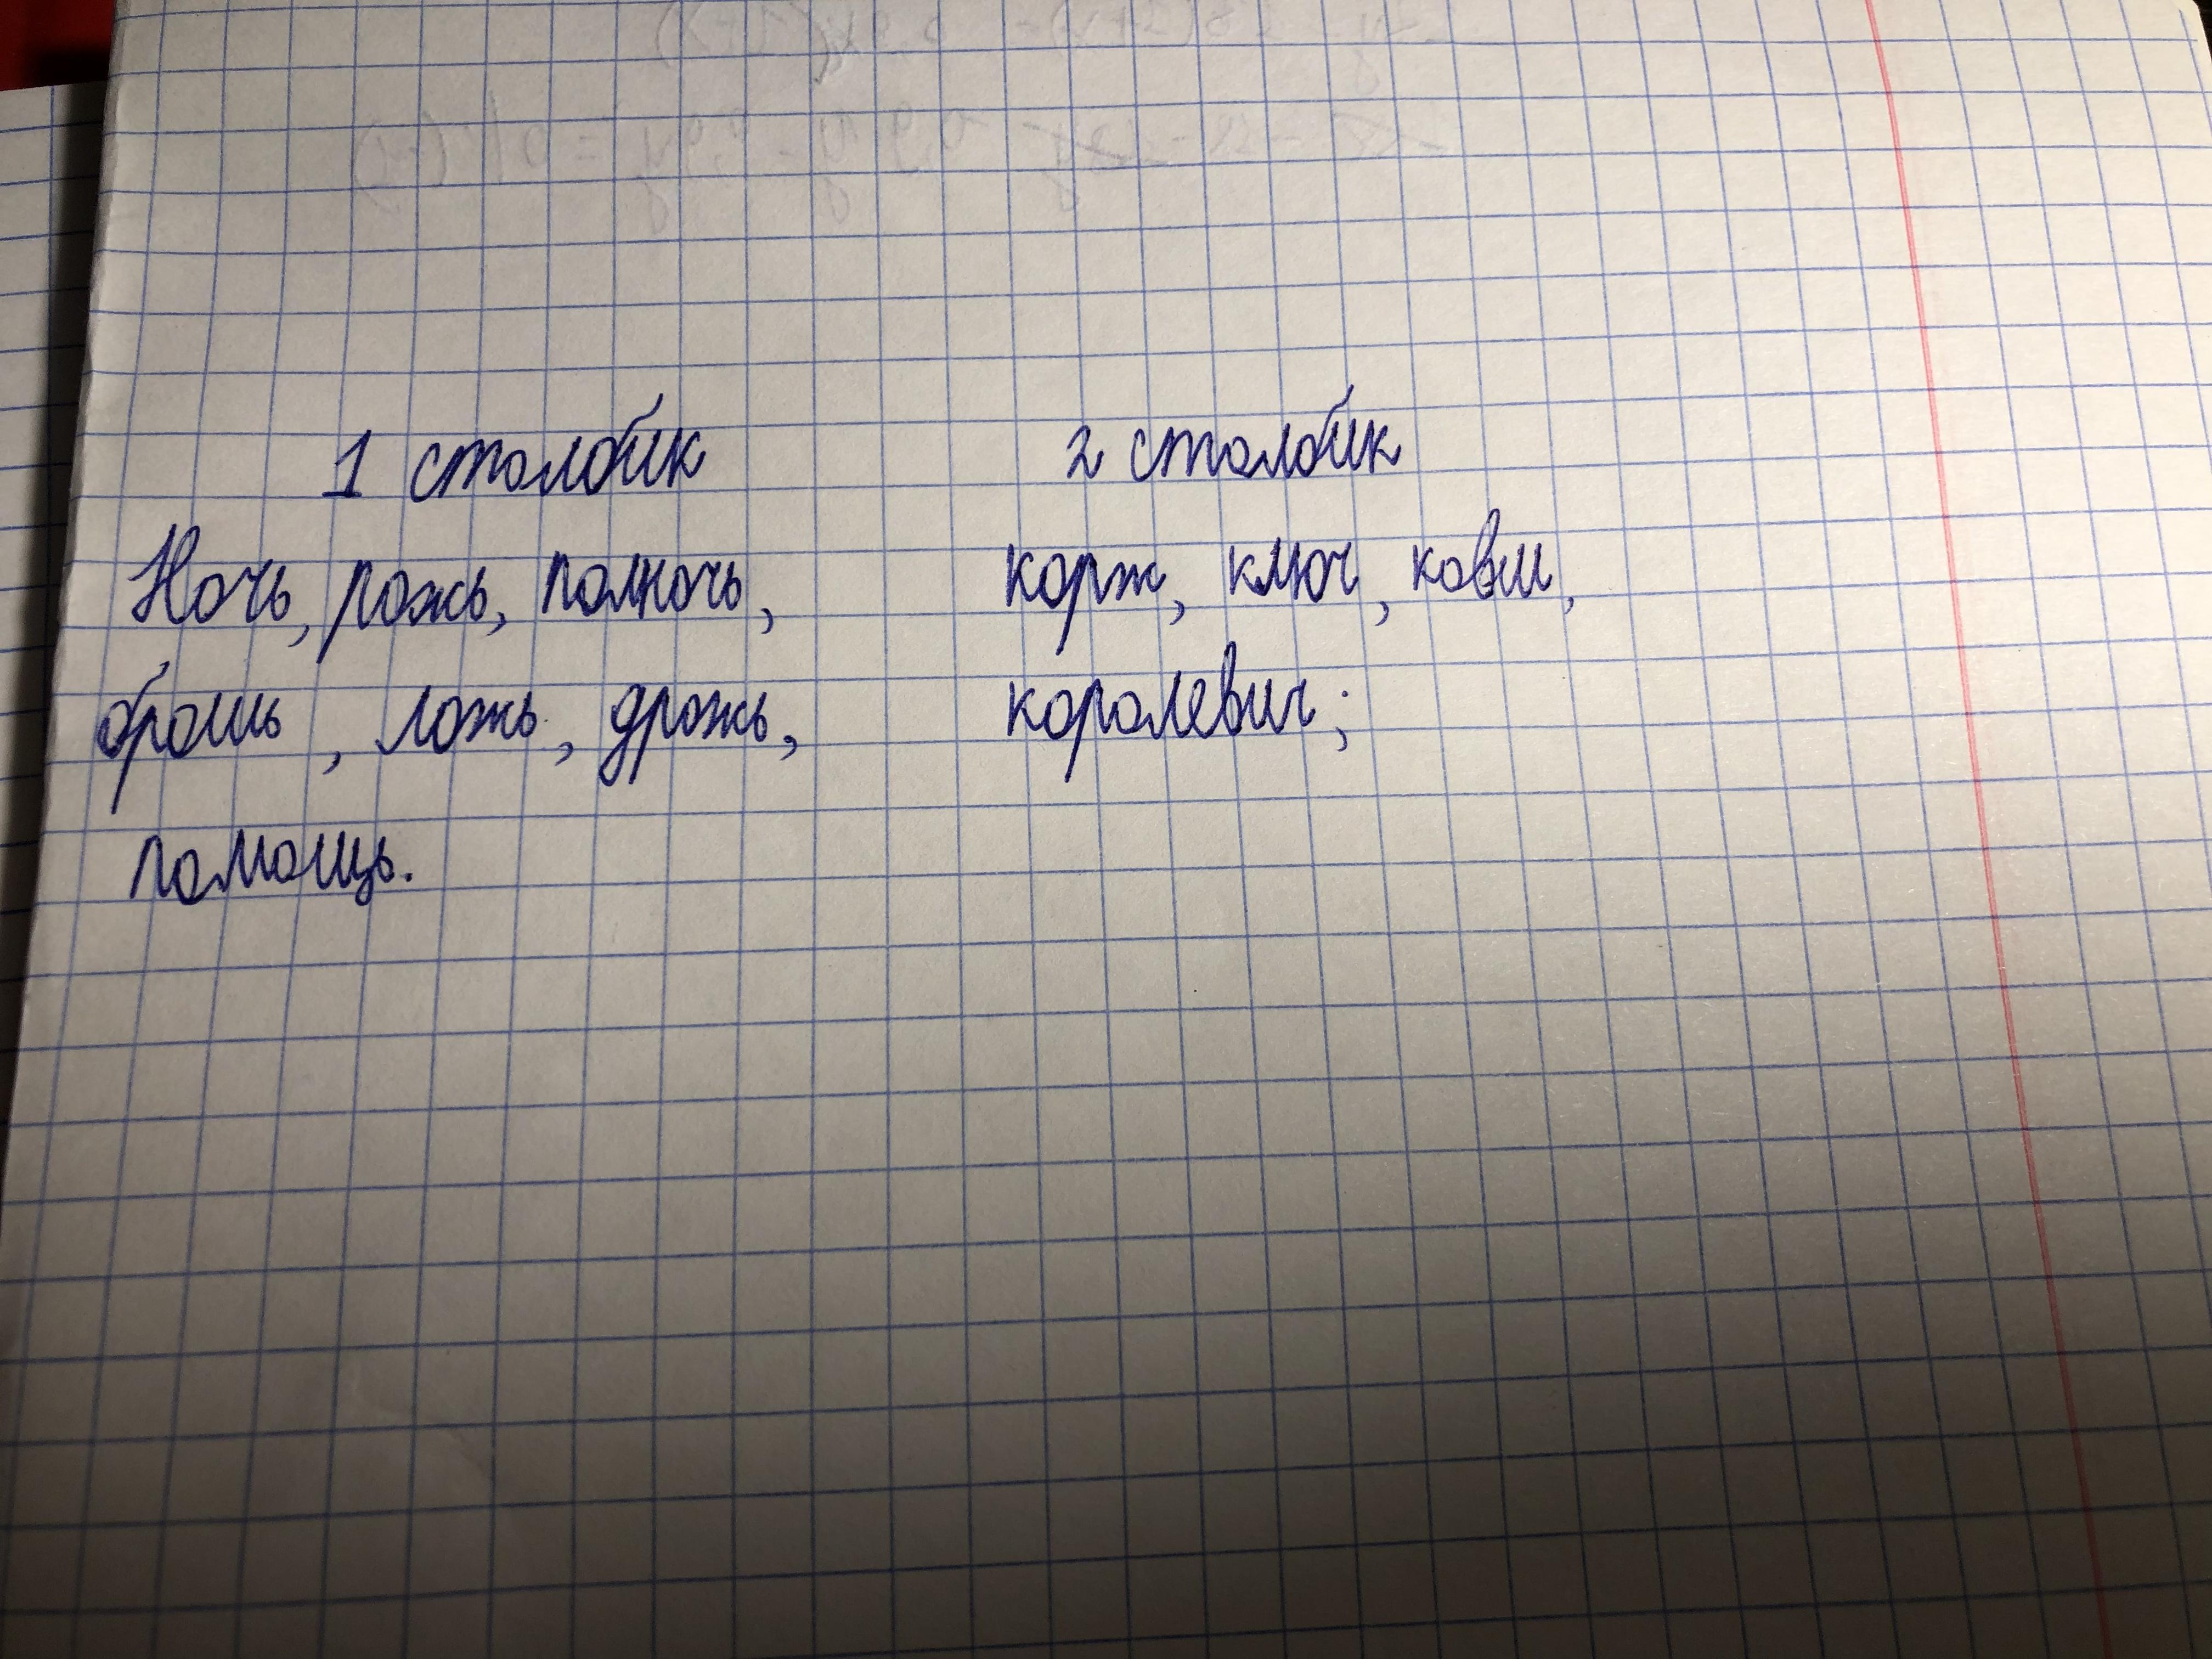 1 столбик
Ночь, рожь, полночь,
брошь, ложь, дрожь,
помощь.
2 столбик
корж, ключ, ковш,
королевич;